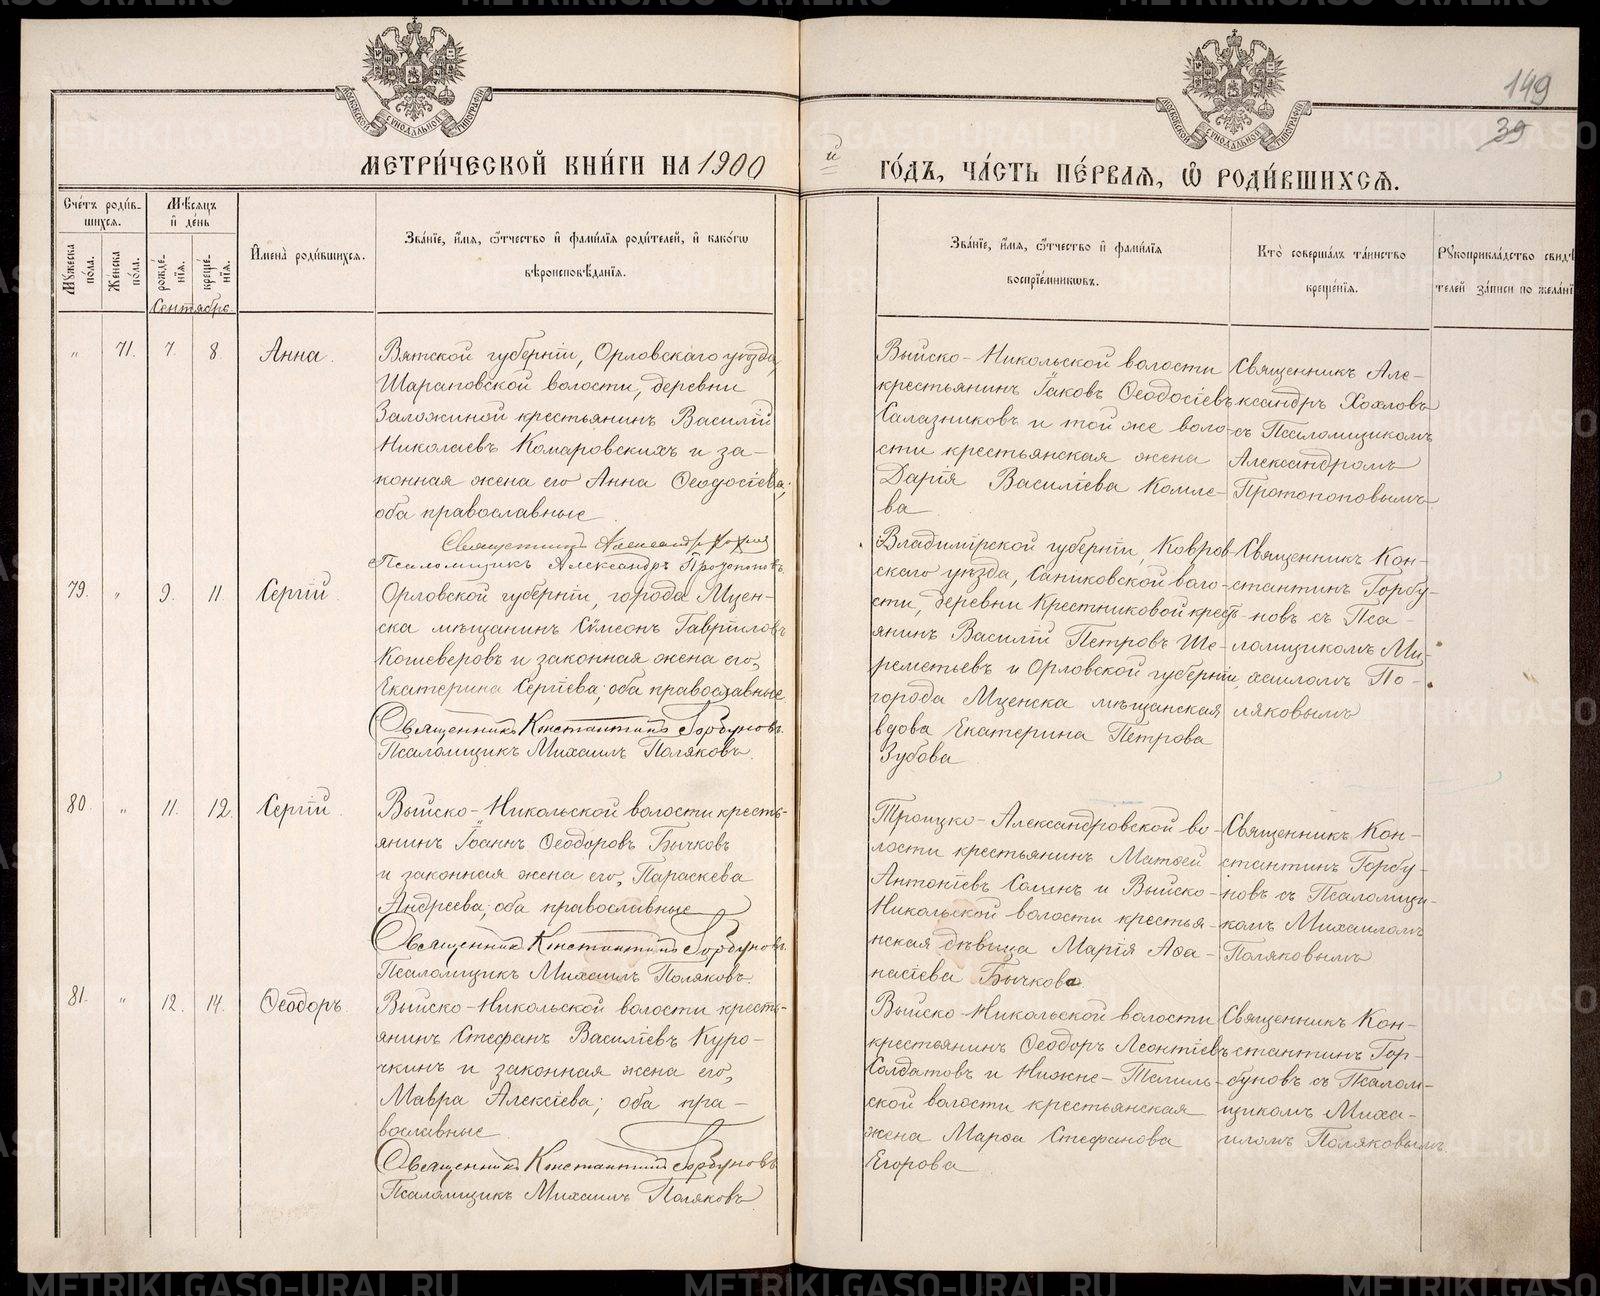 149
39
МОСКОВСКОЙ СѴНОДАЛЬНОЙ ТИПОГРАФІИ
МОСКОВСКОЙ СѴНОДАЛЬНОЙ ТИПОГРАФІИ
МЕТРИ́ЧЕСКОЙ КНИ́ГИ НА 1900
й ГО́ДЪ, ЧА́СТЬ ПЕ́РВАЯ, Ѡ҆ РОДИ́ВШИХСЯ.
Сче́тъ роди́в-
шихся.
Мѣ́сяцъ
и҆ де́нь
Мꙋ́жеска
по́ла.
Же́нска
по́ла.
рожде́-
нїя.
креще́-
нїя.
И҆мена̀ роди́вшихся.
Зва́нїе, и҆́мя, ѻ҆́тчество и҆ фами́лїя роди́телей, и҆ како́гѡ
вѣроисповѣ́данїя.
Зва́нїе, и҆́мя, ѻ҆́тчество и҆ фами́лїя
воспрїе́мникѡвъ.
Кто̀ соверша́лъ та́инство
креще́нїя.
Рꙋкоприкла́дство свидѣ́
телей за́писи по жела́нї
Сентябрь.
" 71. 7. 8. Анна.
Вятской губерніи, Орловскаго уѣзда,
Шараповской волости, деревни
Заложиной крестьянинъ Василій
Николаевъ Комаровскихъ и за-
конная жена его Анна Ѳеодосіева;
оба православные
Священникъ Александръ Хохловъ
Псаломщикъ Александръ Протопоповъ.
Выйско-Никольской волости
крестьянинъ Іаковъ Ѳеодосіевъ
Салазниковъ и той же воло-
сти крестьянская жена
Дарія Василіева Комле-
ва
Священникъ Але-
ксандръ Хохловъ
съ Псаломщикомъ
Александромъ
Протопоповымъ
79. " 9. 11. Сергій.
Орловской губерніи, города Мцен-
ска мѣщанинъ Сѵмеонъ Гавріиловъ
Кошеверовъ и законная жена его,
Екатерина Сергіева; оба православные
Священникъ Константинъ Горбуновъ.
Псаломщикъ Михаилъ Поляковъ.
Владимірской губерніи, Ковров
скаго уѣзда, Саниковской воло-
сти, деревни Крестниковой крест
янинъ Василій Петровъ Ше-
реметьевъ и Орловской губерніи,
города Мценска мѣщанская
вдова Екатерина Петрова
Зубова
Священникъ Кон-
стантинъ Горбу-
новъ съ Пса-
ломщикомъ Ми-
хаиломъ По-
ляковымъ
80. " 11. 12. Сергій
Выйско-Никольской волости кресть-
янинъ Іоаннъ Ѳеодоровъ Бычковъ
и законная жена его, Параскева
Андреева; оба православные
Священникъ Константинъ Горбуновъ.
Псаломщикъ Михаилъ Поляковъ.
Троицко-Александровской во-
лости крестьянинъ Матѳей
Антоніевъ Соминъ и Выйско-
Никольской волости крестья-
нская дѣвица Марія Аѳа-
насіева Бычкова
Священникъ Кон-
стантинъ Горбу-
новъ съ Псаломщи-
комъ Михаиломъ
Поляковымъ
81. " 12. 14. Ѳеодоръ.
Выйско-Никольской волости кресть-
янинъ Стефанъ Василіевъ Куро-
чкинъ и законная жена его,
Мавра Алексіева; оба пра-
вославные
Священникъ Константинъ Горбуновъ
Псаломщикъ Михаилъ Поляковъ
Выйско-Никольской волости
крестьянинъ Ѳеодоръ Леонтіевъ
Солдатовъ и Нижне-Тагиль-
ской волости крестьянская
жена Марѳа Стефанова
Егорова
Священникъ Кон-
стантинъ Гор-
буновъ съ Псалом-
щикомъ Миха-
иломъ Поляковымъ.
METRIKI.GASO-URAL.RU